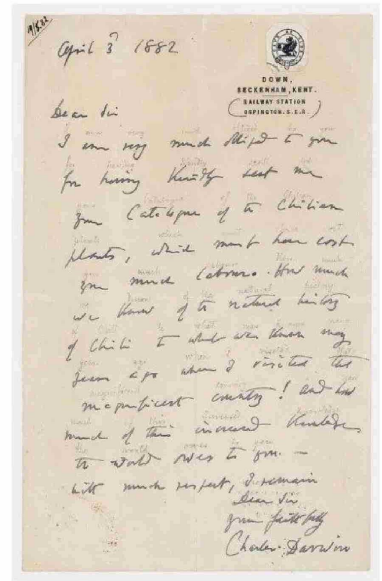 April 3ᵈ 1882
DOWN,
BECKENHAM, KENT.
(RAILWAY STATION
ORPINGTON. S.E.R.)
Dear Sir
I am very much obliged to you
for having kindly sent me
your Catalogue of the Chilian
plants, which must have cost
you much labour. How much
we know of the natural history
of Chili to what was known many
years ago when I visited this
magnificent country! and how
much of this increased knowledge
the world owes to you. —
With much respect, I remain
Dear Sir
yours faithfully
Charles Darwin